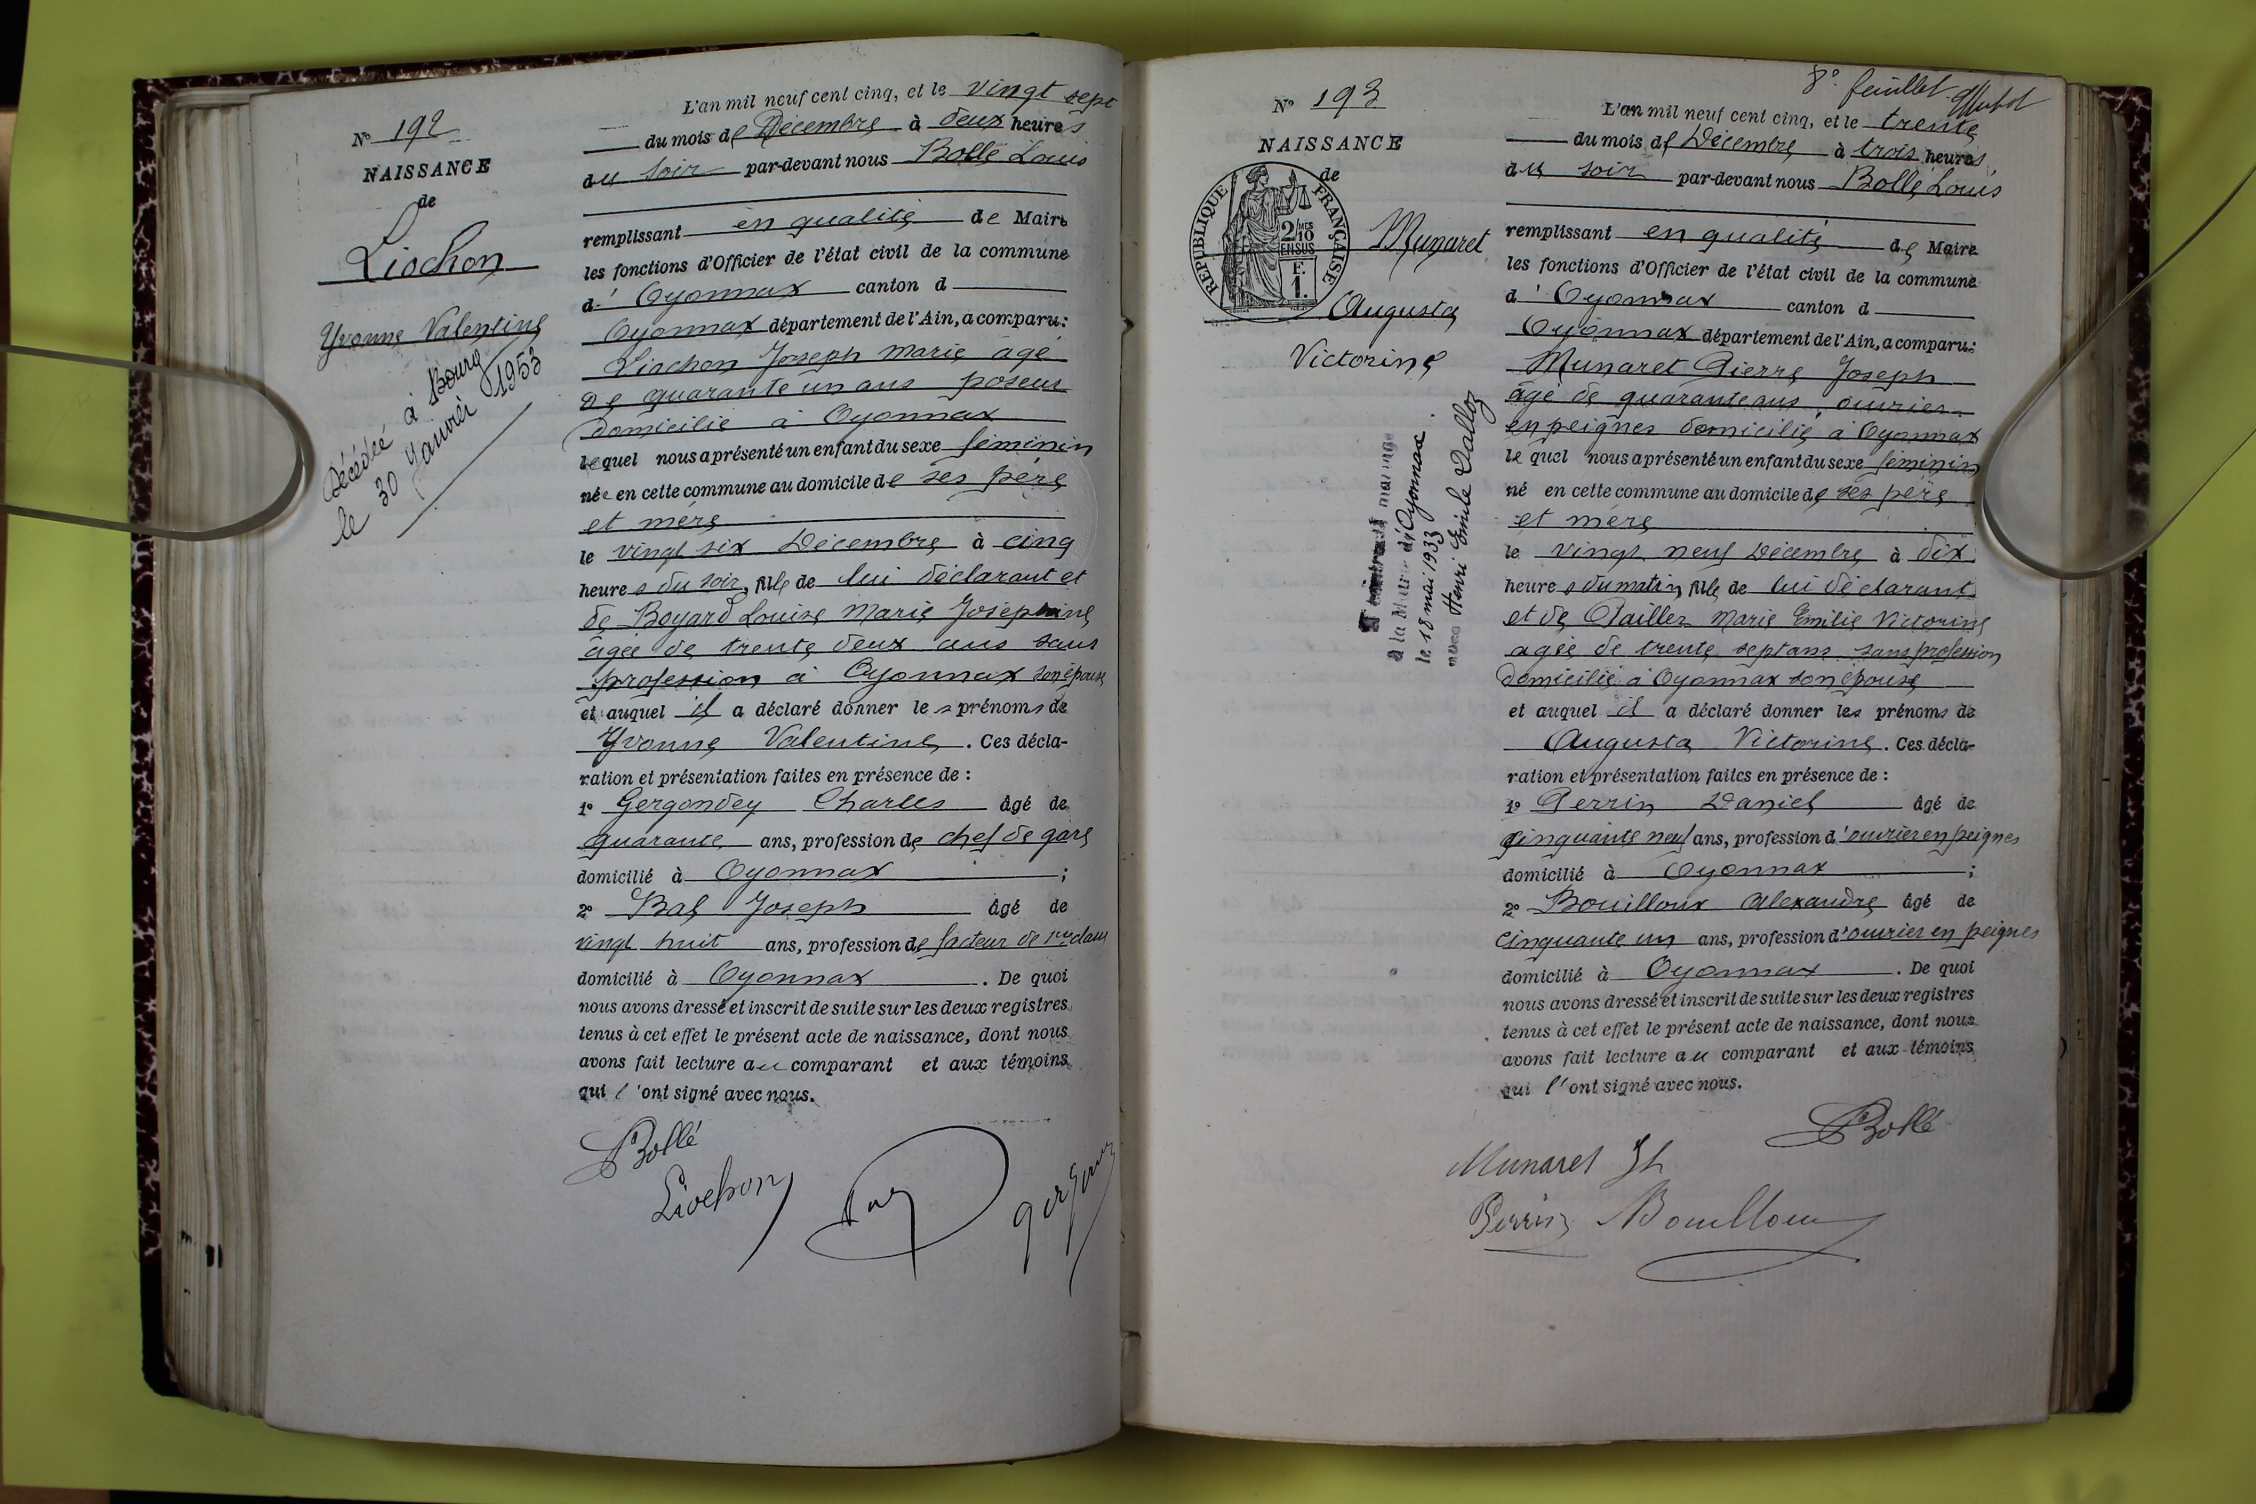 N° 192
NAISSANCE
de
Liochon
Yvonne Valentine
Décédée à Bourg
le 30 Janvier 1953
L'an mil neuf cent cinq, et le vingt sept
du mois de Décembre à deux heures
du soir par-devant nous Bollé Louis
remplissant en qualité de Maire
les fonctions d'Officier de l'état civil de la commune
d' Oyonnax canton d
Oyonnax département de l'Ain, a comparu:
Liochon Joseph Marie âgé
de quarante un ans poseur
domicilié à Oyonnax
lequel nous a présenté un enfant du sexe féminin
née en cette commune au domicile de ses père
et mère
le vingt six Décembre à cinq
heures du soir, fille de lui déclarant et
de Boyard Louise Marie Joséphine
âgée de trente deux ans sans
profession à Oyonnax son épouse
et auquel il a déclaré donner les prénoms de
Yvonne Valentine. Ces décla-
ration et présentation faites en présence de :
1° Gergondey Charles âgé de
quarante ans, profession de chef de gare
domicilié à Oyonnax ;
2° Bal Joseph âgé de
vingt huit ans, profession de facteur de 1re classe
domicilié à Oyonnax. De quoi
nous avons dressé et inscrit de suite sur les deux registres
tenus à cet effet le présent acte de naissance, dont nous
avons fait lecture au comparant et aux témoins
qui l'ont signé avec nous.
Bollé
Liochon
8e feuillet
N° 193
NAISSANCE
de
RÉPUBLIQUE FRANÇAISE
2/10 MES
EN SUS
F.
1.
Munaret
Augusta
Victorine
à la Mairie d'Oyonnax
le 18 mai 1933
avec Henri Emile Dalloz
L'an mil neuf cent cinq, et le trente
du mois de Décembre à trois heures
du soir par-devant nous Bollé Louis
remplissant en qualité de Maire
les fonctions d'Officier de l'état civil de la commune
d' Oyonnax canton d
Oyonnax département de l'Ain, a comparu:
Munaret Pierre Joseph
âgé de quarante ans, ouvrier
en peignes domicilié à Oyonnax
lequel nous a présenté un enfant du sexe féminin
né en cette commune au domicile de ses père
et mère
le vingt neuf Décembre à dix
heures du matin, fille de lui déclarant
et de Paillez Marie Emilie Victorine
agée de trente sept ans sans profession
domiciliée à Oyonnax son épouse
et auquel il a déclaré donner les prénoms de
Augusta Victorine. Ces décla-
ration et présentation faites en présence de :
1° Perrin Daniel âgé de
cinquante neuf ans, profession d'ouvrier en peignes
domicilié à Oyonnax ;
2° Bouilloux Alexandre âgé de
cinquante un ans, profession d'ouvrier en peignes
domicilié à Oyonnax. De quoi
nous avons dressé et inscrit de suite sur les deux registres
tenus à cet effet le présent acte de naissance, dont nous
avons fait lecture au comparant et aux témoins
qui l'ont signé avec nous.
Bollé
Munaret Jh
Perrin Bouilloux